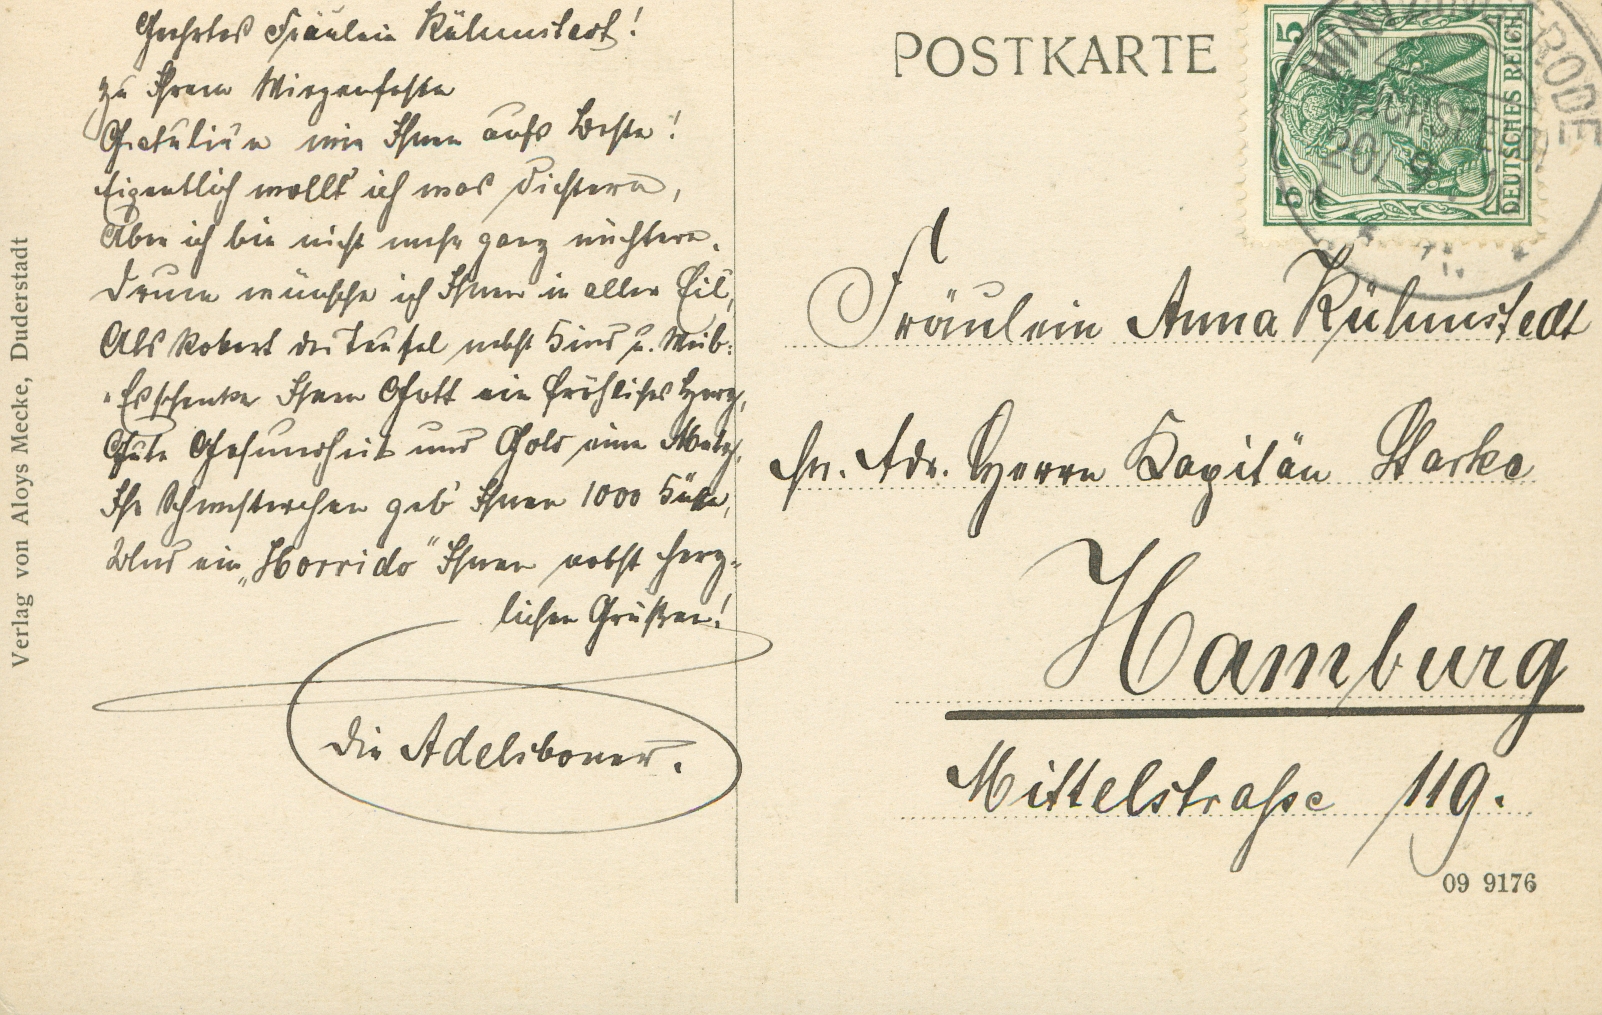 Geehrtes Fräulein Kühmstedt!
zu Ihrem Wiegenfeste
Gratulieren wir Ihnen aufs Beste!
Eigentlich wollt' ich was dichtern,
Aber ich bin nicht mehr ganz nüchtern.
Drum wünsche ich Ihnen in aller Eil,
Als Robert der Teufel nebst Kind u. Weib:
Es schenke Ihnen Gott ein fröhliches Herz,
Gute Gesundheit und Gold eine Metz,
Ihr Schwesterchen geb' Ihnen 1000 Küsse,
Und ein „Horrido" Ihnen nebst herz-
lichen Grüßen!
Die Adelsboner.
Verlag von Aloys Mecke, Duderstadt
POSTKARTE
5
5
DEUTSCHES REICH
Fräulein Anna Kühmstedt
fr. Adr. Herrn Kapitän Starke
Hamburg
Mittelstraße 119.
09 9176